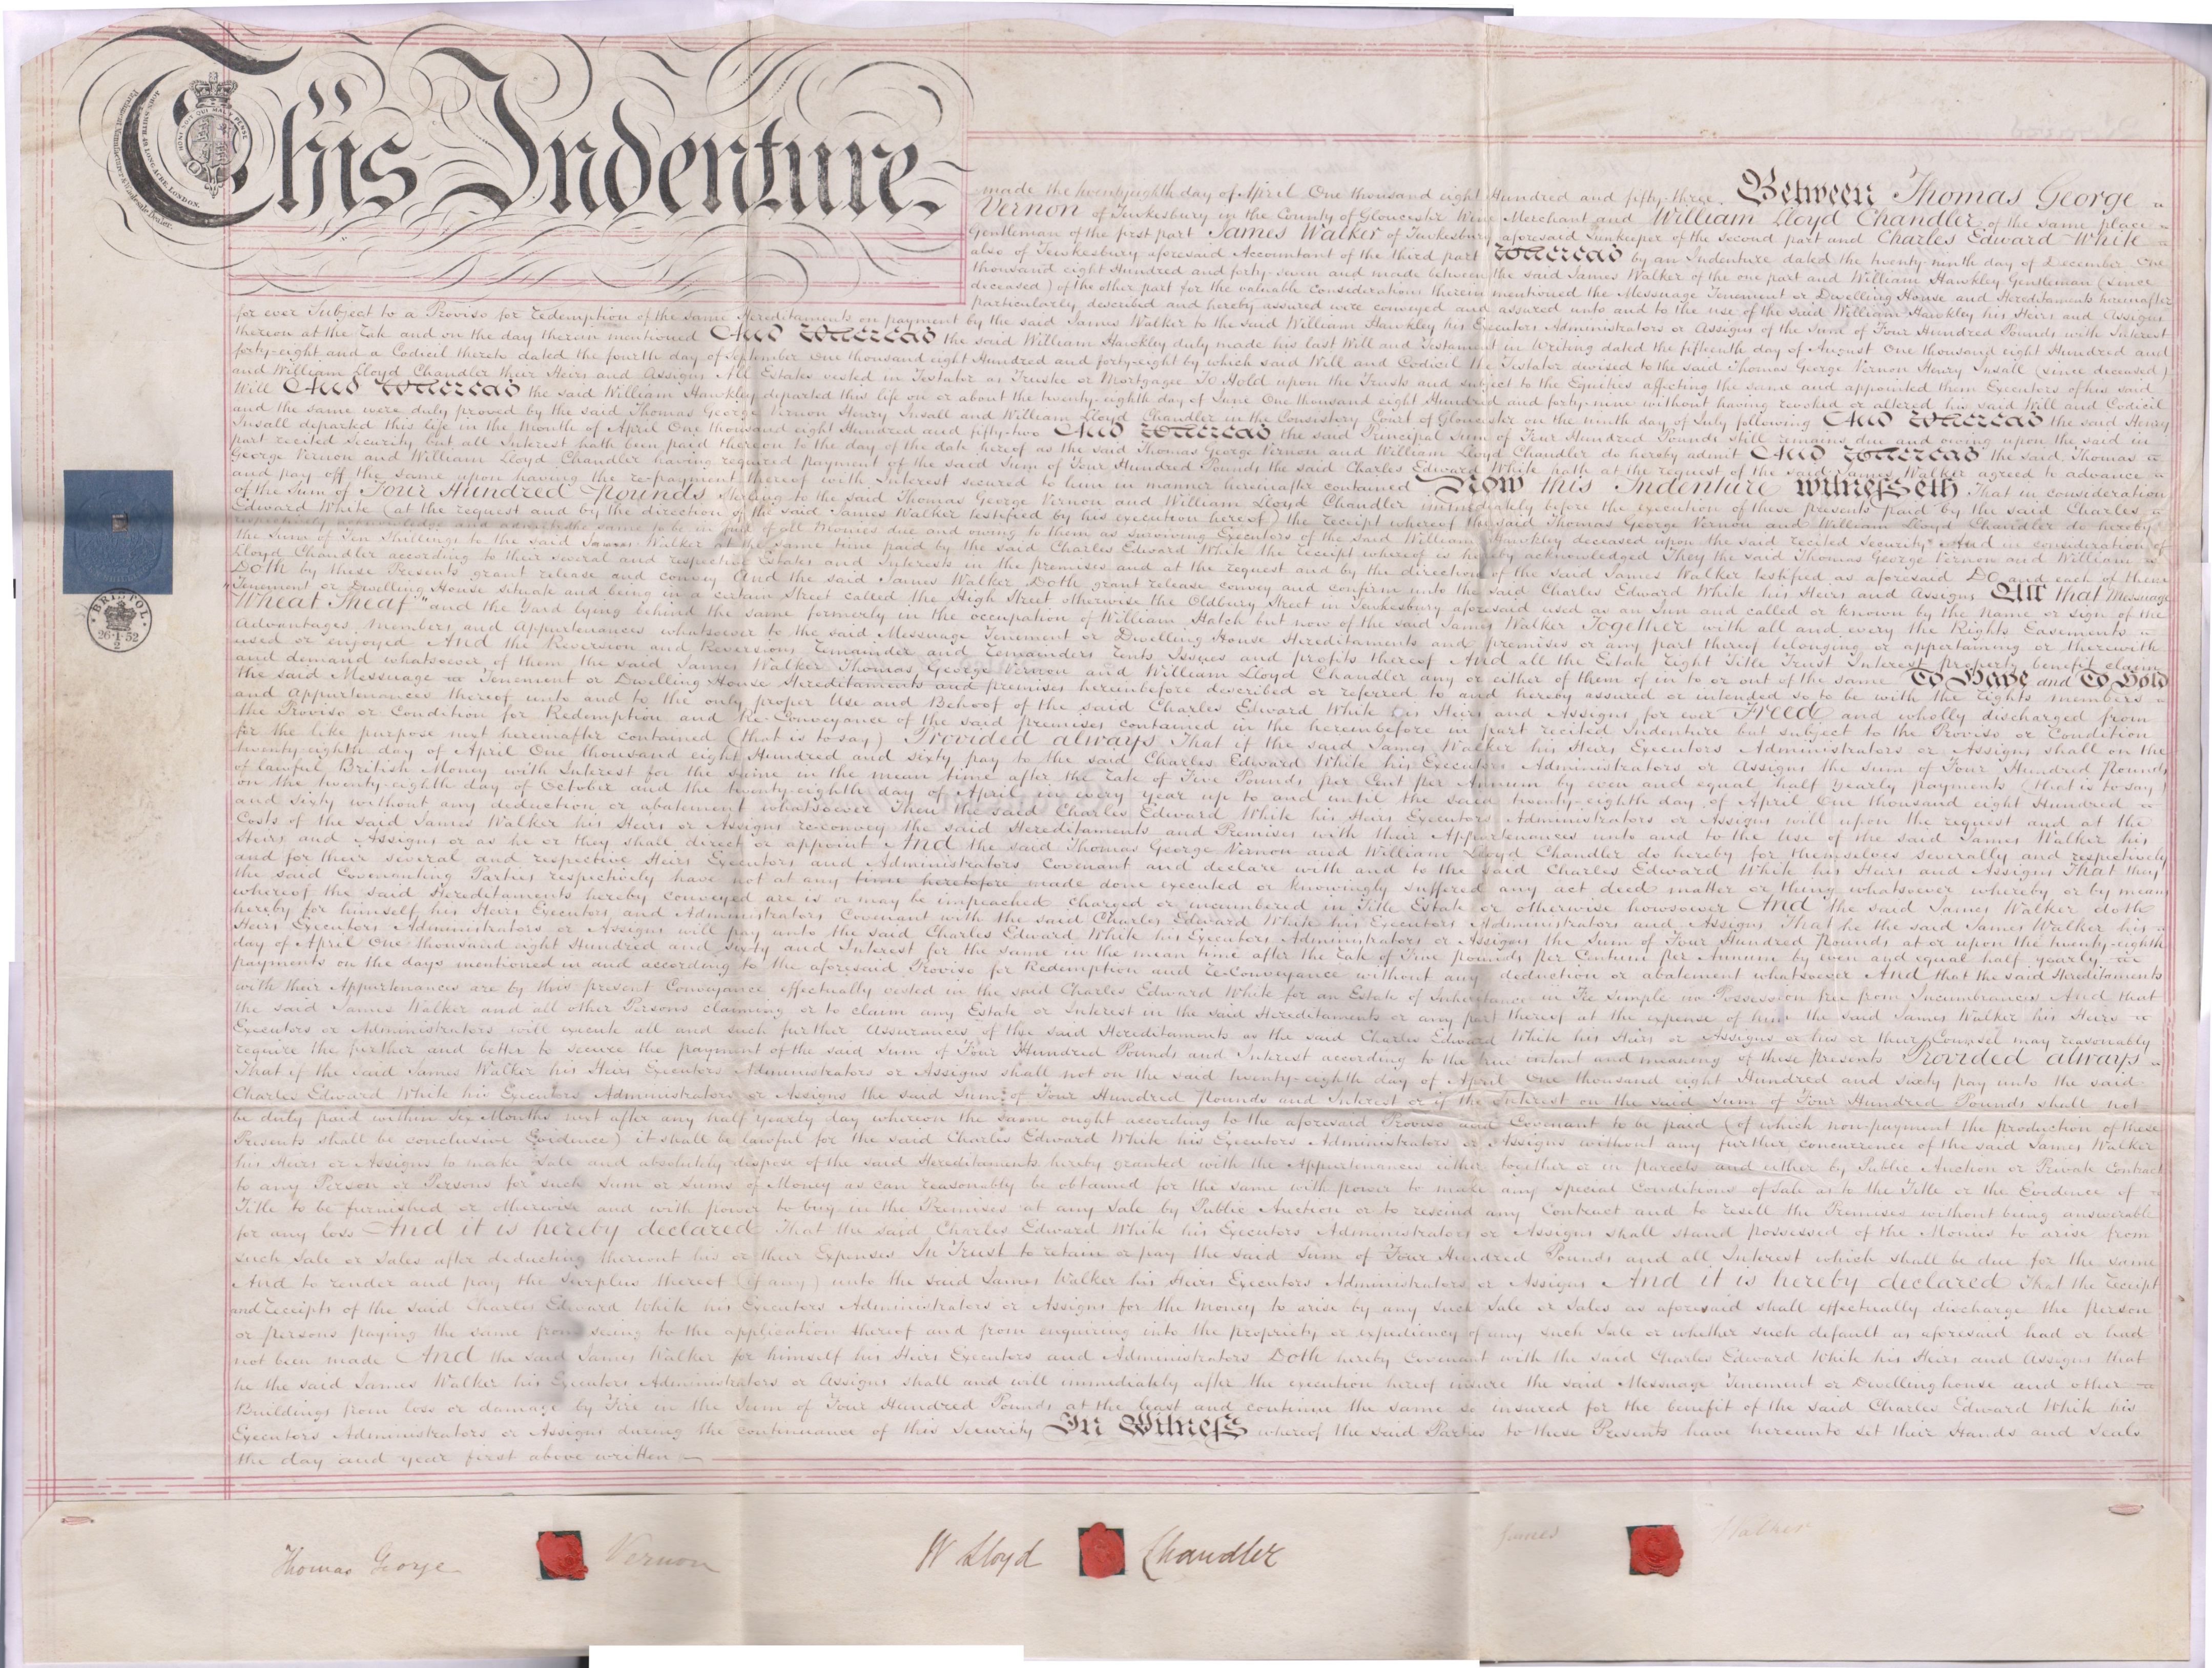 This Indenture
HONI SOIT QUI MAL Y PENSE
JOHN SMITH 49 LONG-ACRE, LONDON.
Parchment Manufacturer & Wholesale Dealer.
made the twenty eighth day of April One thousand eight Hundred and fifty-three. Between Thomas George
Vernon of Tewkesbury in the County of Gloucester Wine Merchant and William Lloyd Chandler of the same place
Gentleman of the first part James Walker of Tewkesbury aforesaid Innkeeper of the second part and Charles Edward White
also of Tewkesbury aforesaid Accountant of the third part Whereas by an Indenture dated the twenty-ninth day of December One
thousand eight Hundred and forty-seven and made between the said James Walker of the one part and William Hawkley Gentleman (since
deceased) of the other part for the valuable considerations therein mentioned the Messuage Tenement or Dwelling House and Hereditaments hereinafter
particularly described and hereby assured were conveyed and assured unto and to the use of the said William Hawkley his Heirs and Assigns
for ever Subject to a Proviso for Redemption of the same Hereditaments on payment by the said James Walker to the said William Hawkley his Executors Administrators or Assigns of the Sum of Four Hundred Pounds with Interest
thereon at the Rate and on the day therein mentioned And Whereas the said William Hawkley duly made his last Will and Testament in Writing dated the fifteenth day of August One thousand eight Hundred and
forty-eight and a Codicil thereto dated the fourth day of September One thousand eight Hundred and forty-eight by which said Will and Codicil the Testator devised to the said Thomas George Vernon Henry Insall (since deceased)
and William Lloyd Chandler their Heirs and Assigns All Estates vested in Testator as Trustee or Mortgagee To Hold upon the Trusts and subject to the Equities affecting the same and appointed them Executors of his said
Will And Whereas the said William Hawkley departed this life on or about the twenty-eighth day of June One thousand eight Hundred and forty-nine without having revoked or altered his said Will and Codicil
and the same were duly proved by the said Thomas George Vernon Henry Insall and William Lloyd Chandler in the Consistory Court of Gloucester on the ninth day of July following And Whereas the said Henry
Insall departed this life in the Month of April One thousand eight Hundred and fifty-two And Whereas the said Principal Sum of Four Hundred Pounds still remains due and owing upon the said in
part recited Security but all Interest hath been paid thereon to the day of the date hereof as the said Thomas George Vernon and William Lloyd Chandler do hereby admit And Whereas the said Thomas
George Vernon and William Lloyd Chandler having required payment of the said Sum of Four Hundred Pounds the said Charles Edward White hath at the request of the said James Walker agreed to advance
and pay off the same upon having the re-payment thereof with Interest secured to him in manner hereinafter contained Now this Indenture witnesseth That in consideration
of the Sum of Four Hundred Pounds Sterling to the said Thomas George Vernon and William Lloyd Chandler immediately before the execution of these presents paid by the said Charles
Edward White (at the request and by the direction of the said James Walker testified by his execution hereof) the receipt whereof the said Thomas George Vernon and William Lloyd Chandler do hereby
respectively acknowledge and admit the same to be in full of all Monies due and owing to them as surviving Executors of the said William Hawkley deceased upon the said recited Security And in consideration of
the Sum of Ten Shillings to the said James Walker at the same time paid by the said Charles Edward White the receipt whereof is hereby acknowledged They the said Thomas George Vernon and William
Lloyd Chandler according to their several and respective Estates and Interests in the premises and at the request and by the direction of the said James Walker testified as aforesaid Do and each of them
Doth by these Presents grant release and convey And the said James Walker Doth grant release convey and confirm unto the said Charles Edward White his Heirs and Assigns All that Messuage
Tenement or Dwelling House situate and being in a certain Street called the High Street otherwise the Oldbury Street in Tewkesbury aforesaid used as an Inn and called or known by the name or sign of the
"Wheat Sheaf" and the Yard lying behind the same formerly in the occupation of William Hatch but now of the said James Walker Together with all and every the Rights Easements
Advantages Members and Appurtenances whatsoever to the said Messuage Tenement or Dwelling House Hereditaments and premises or any part thereof belonging or appertaining or therewith
used or enjoyed And the Reversion and Reversions Remainder and Remainders Rents Issues and profits thereof And all the Estate Right Title Trust Interest property benefit claim
and demand whatsoever of them the said James Walker Thomas George Vernon and William Lloyd Chandler any or either of them of in to or out of the same To Have and To Hold
the said Messuage Tenement or Dwelling House Hereditaments and premises hereinbefore described or referred to and hereby assured or intended so to be with the rights members
and appurtenances thereof unto and to the only proper Use and Behoof of the said Charles Edward White his Heirs and Assigns for ever Freed and wholly discharged from
the Proviso or Condition for Redemption and Re-Conveyance of the said premises contained in the hereinbefore in part recited Indenture but subject to the Proviso or Condition
for the like purpose next hereinafter contained (that is to say) Provided always That if the said James Walker his Heirs Executors Administrators or Assigns shall on the
twenty-eighth day of April One thousand eight Hundred and sixty pay to the said Charles Edward White his Executors Administrators or Assigns the Sum of Four Hundred Pounds
of lawful British Money with Interest for the same in the mean time after the Rate of Five Pounds per Cent per Annum by even and equal half yearly payments (that is to say)
on the twenty-eighth day of October and the twenty-eighth day of April in every year up to and until the said twenty-eighth day of April One thousand eight Hundred
and sixty without any deduction or abatement whatsoever Then the said Charles Edward White his Heirs Executors Administrators or Assigns will upon the request and at the
Costs of the said James Walker his Heirs or Assigns re-convey the said Hereditaments and Premises with their Appurtenances unto and to the Use of the said James Walker his
Heirs and Assigns or as he or they shall direct or appoint And the said Thomas George Vernon and William Lloyd Chandler do hereby for themselves severally and respectively
and for their several and respective Heirs Executors and Administrators Covenant and declare with and to the said Charles Edward White his Heirs and Assigns That they
the said Covenanting Parties respectively have not at any time heretofore made done executed or knowingly suffered any act deed matter or thing whatsoever whereby or by means
whereof the said Hereditaments hereby conveyed are is or may be impeached charged or incumbered in Title Estate or otherwise howsoever And the said James Walker doth
hereby for himself his Heirs Executors and Administrators Covenant with the said Charles Edward White his Executors Administrators and Assigns That he the said James Walker his
Heirs Executors Administrators or Assigns will pay unto the said Charles Edward White his Executors Administrators or Assigns the Sum of Four Hundred Pounds at or upon the twenty-eighth
day of April One thousand eight Hundred and sixty and Interest for the same in the mean time after the Rate of Five pounds per Centum per Annum by even and equal half yearly
payments on the days mentioned in and according to the aforesaid Proviso for Redemption and Re-Conveyance without any deduction or abatement whatsoever And that the said Hereditaments
with their Appurtenances are by this present Conveyance effectually vested in the said Charles Edward White for an Estate of Inheritance in Fee Simple in Possession free from Incumbrances And that
the said James Walker and all other Persons claiming or to claim any Estate or Interest in the said Hereditaments or any part thereof at the expense of him the said James Walker his Heirs
Executors or Administrators will execute all and such further Assurances of the said Hereditaments as the said Charles Edward White his Heirs or Assigns or his or their Counsel may reasonably
require the further and better to secure the payment of the said Sum of Four Hundred Pounds and Interest according to the true intent and meaning of these presents Provided always
That if the said James Walker his Heirs Executors Administrators or Assigns shall not on the said twenty-eighth day of April One thousand eight Hundred and sixty pay unto the said
Charles Edward White his Executors Administrators or Assigns the said Sum of Four Hundred Pounds and Interest or if the Interest on the said Sum of Four Hundred Pounds shall not
be duly paid within Six Months next after any half yearly day whereon the same ought according to the aforesaid Proviso and Covenant to be paid (of which non-payment the production of these
Presents shall be conclusive Evidence) it shall be lawful for the said Charles Edward White his Executors Administrators or Assigns without any further concurrence of the said James Walker
his Heirs or Assigns to make Sale and absolutely dispose of the said Hereditaments hereby granted with the Appurtenances either together or in parcels and either by Public Auction or Private Contract
to any Person or Persons for such Sum or Sums of Money as can reasonably be obtained for the same with power to make any special Conditions of Sale as to the Title or the Evidence of
Title to be furnished or otherwise and with power to buy in the Premises at any Sale by Public Auction or to rescind any Contract and to resell the Premises without being answerable
for any loss And it is hereby declared That the said Charles Edward White his Executors Administrators or Assigns shall stand possessed of the Monies to arise from
such Sale or Sales after deducting thereout his or their Expenses In Trust to retain or pay the said Sum of Four Hundred Pounds and all Interest which shall be due for the same
And to render and pay the Surplus thereof (if any) unto the said James Walker his Heirs Executors Administrators or Assigns And it is hereby declared That the Receipt
and Receipts of the said Charles Edward White his Executors Administrators or Assigns for the Money to arise by any such Sale or Sales as aforesaid shall effectually discharge the person
or persons paying the same from seeing to the application thereof and from enquiring into the propriety or expediency of any such Sale or whether such default as aforesaid had or had
not been made And the said James Walker for himself his Heirs Executors and Administrators Doth hereby Covenant with the said Charles Edward White his Heirs and Assigns that
he the said James Walker his Executors Administrators or Assigns shall and will immediately after the execution hereof insure the said Messuage Tenement or Dwellinghouse and other
Buildings from loss or damage by Fire in the Sum of Four Hundred Pounds at the least and continue the same so insured for the benefit of the said Charles Edward White his
Executors Administrators or Assigns during the continuance of this Security In Witness whereof the said Parties to these Presents have hereunto set their Hands and Seals
the day and year first above written
BRISTOL
26·1·52
2
Thomas George Vernon
W Lloyd Chandler
James Walker